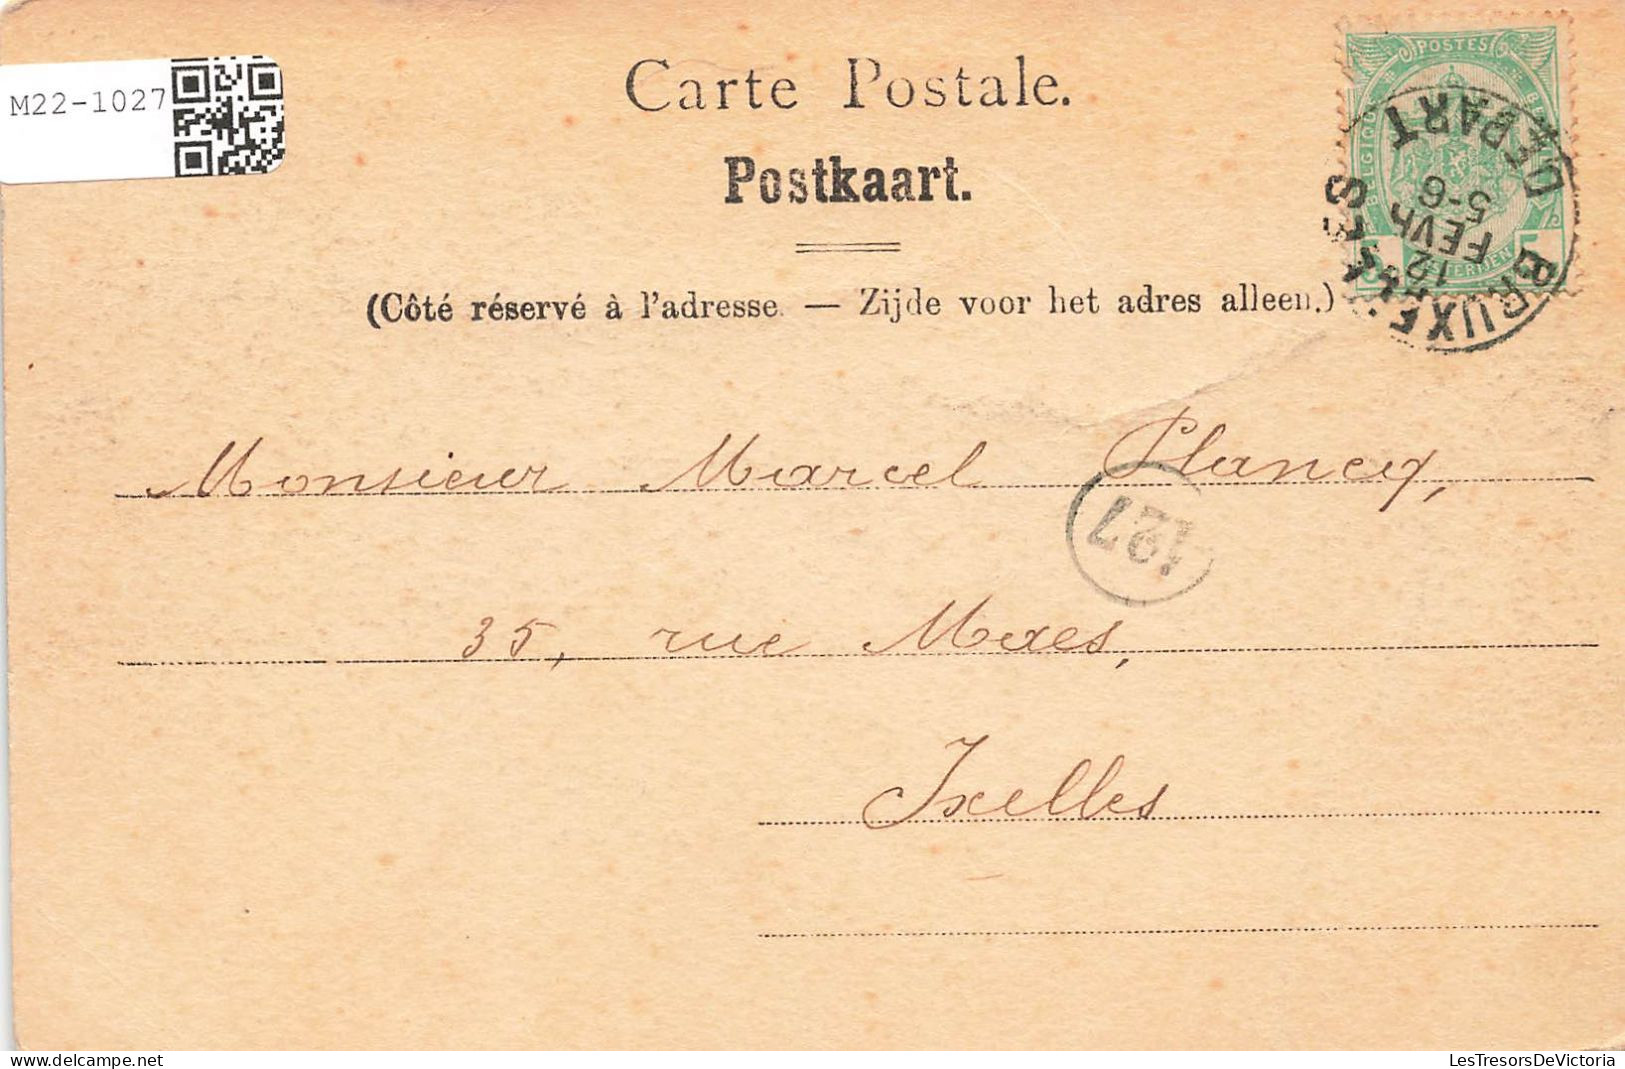 M22-1027
Carte Postale.
Postkaart.
(Côté réservé à l'adresse. — Zijde voor het adres alleen.)
POSTES
BELGIQUE
BRUXELLES
DÉPART
12
FEVR
5-6
Monsieur Marcel Plancq,
127
35, rue Maes,
Ixelles
LesTresorsDeVictoria